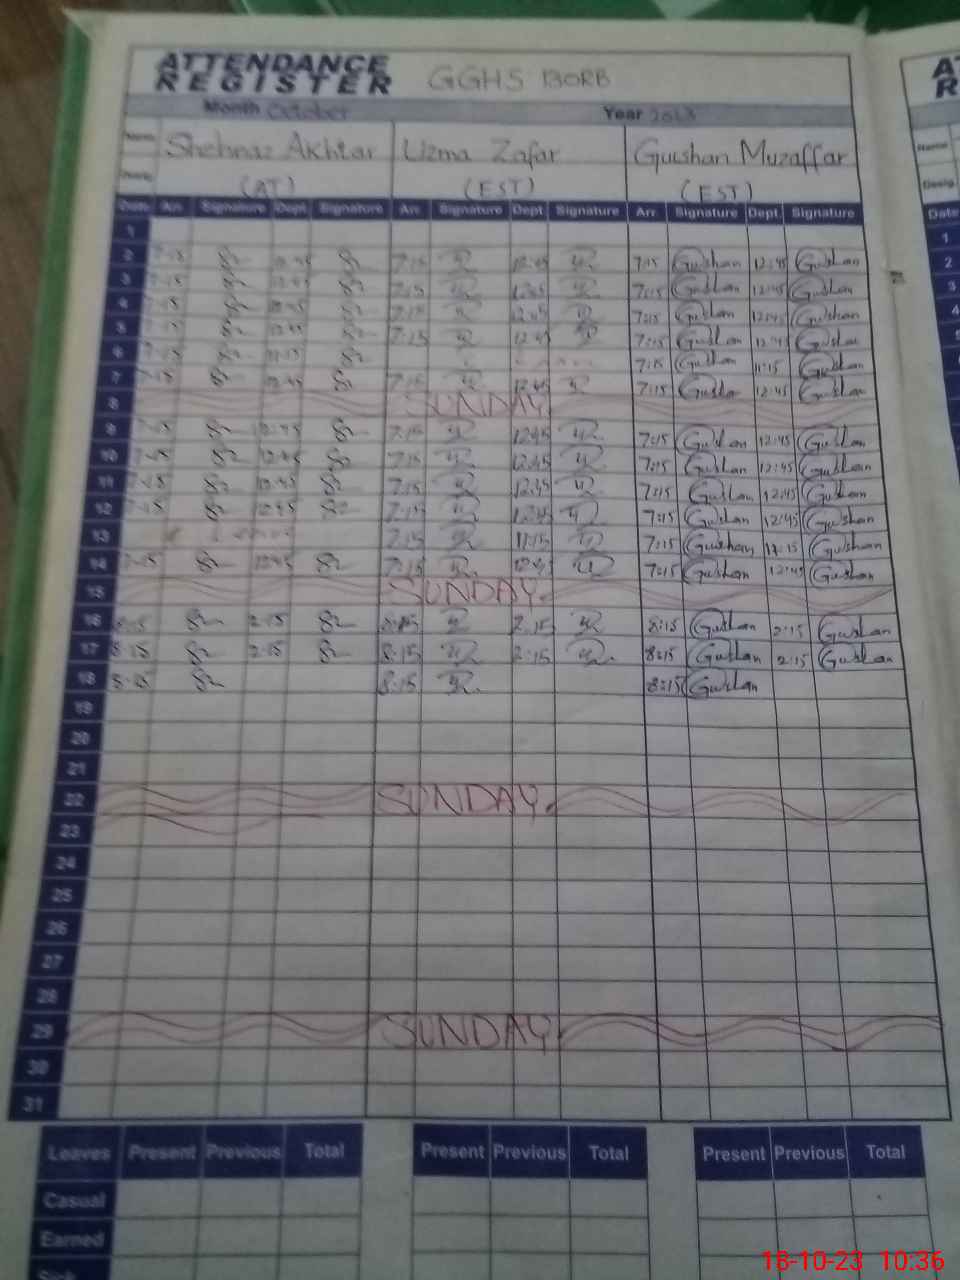 ATTENDANCE REGISTER GGHS 130RB
Month October Year 2023
Name Shehnaz Akhtar Uzma Zafar Gulshan Muzaffar
(AT) (EST) (EST)
Date Arr. Signature Dept. Signature Arr. Signature Dept. Signature Arr. Signature Dept. Signature
1
2 7:15 12:45 7:15 12:45 7:15 Gulshan 12:45 Gulshan
3 7:15 12:45 7:15 12:45 7:15 Gulshan 12:45 Gulshan
4 7:15 12:45 7:15 12:45 7:15 Gulshan 12:45 Gulshan
5 7:15 12:45 7:15 12:45 7:15 Gulshan 12:45 Gulshan
6 7:15 11:15 7:15 Gulshan 11:15 Gulshan
7 7:15 12:45 7:15 12:45 7:15 Gulshan 12:45 Gulshan
8 SUNDAY
9 7:15 12:45 7:15 12:45 7:15 Gulshan 12:45 Gulshan
10 7:15 12:45 7:15 12:45 7:15 Gulshan 12:45 Gulshan
11 7:15 12:45 7:15 12:45 7:15 Gulshan 12:45 Gulshan
12 7:15 12:45 7:15 12:45 7:15 Gulshan 12:45 Gulshan
13 7:15 11:15 7:15 Gulshan 11:15 Gulshan
14 7:15 12:45 7:15 12:45 7:15 Gulshan 12:45 Gulshan
15 SUNDAY.
16 8:15 2:15 8:15 2:15 8:15 Gulshan 2:15 Gulshan
17 8:15 2:15 8:15 2:15 8:15 Gulshan 2:15 Gulshan
18 8:15 8:15 8:15 Gulshan
19
20
21
22 SUNDAY.
23
24
25
26
27
28
29 SUNDAY
30
31
Leaves Present Previous Total Present Previous Total Present Previous Total
Casual
Earned
Sick
Name
Desig.
Date
1
2
3
4
18-10-23 10:36